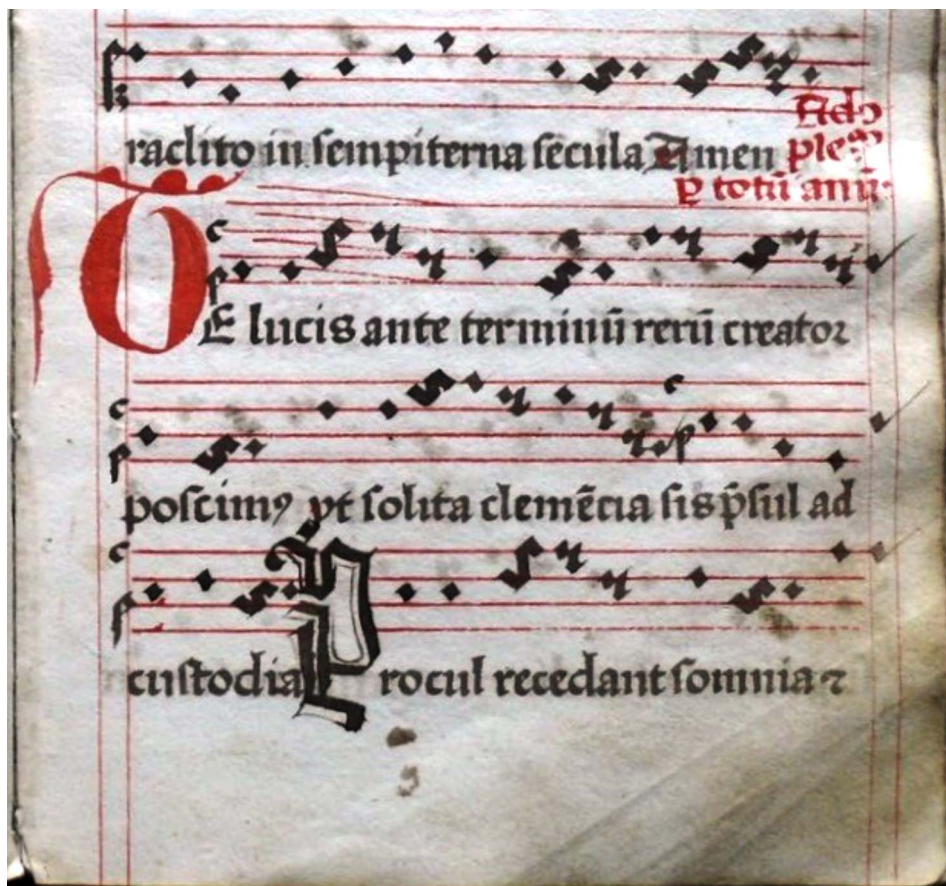 raclito in sempiterna secula Amen
Ad cↄ
ple
p̱ totū anū
TE lucis ante terminū rerū creator
poscimꝰ vt solita clemēcia sis p̄sul ad
custodia Procul recedant somnia ⁊